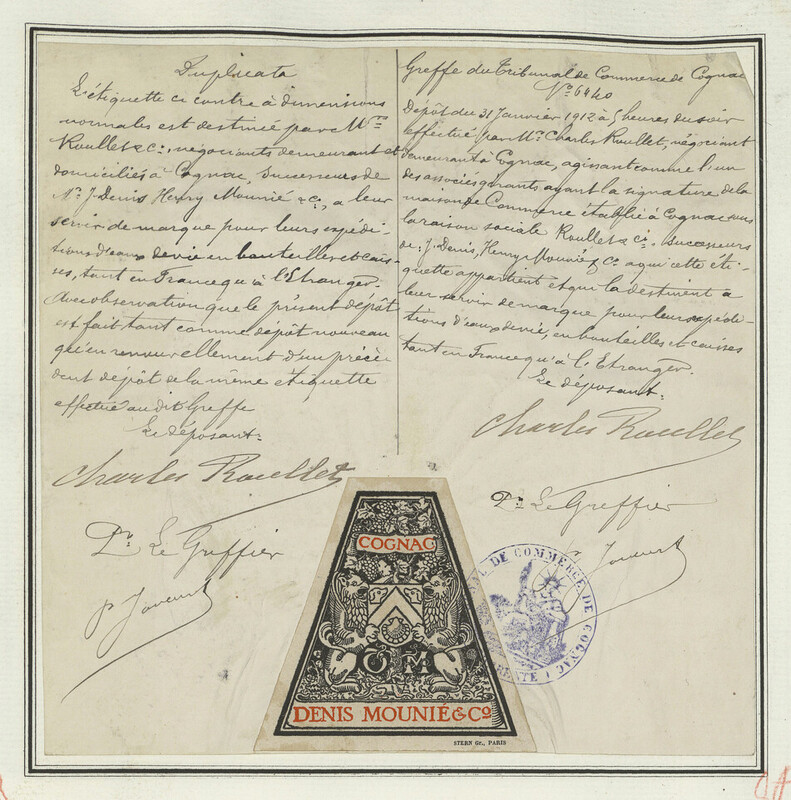 Duplicata
L'étiquette ci contre à dimensions
normales est destinée par Mrs
Roullet & Cie, négociants demeurant et
domiciliés à Cognac, successeurs de
Mrs J. Denis, Henry Mounié & Co, a leur
servir de marque pour leurs expédi-
tions d'eaux de vie en bouteilles et cais-
ses, tant en France qu'à l'Etranger.
Avec observation que le présent dépôt
est fait tant comme dépôt nouveau
qu'en renouvellement d'un précé-
dent dépôt de la même étiquette
effectué au dit Greffe
Le déposant:
Charles Roullet
Pr Le Greffier
Greffe du Tribunal de Commerce de Cognac
No 6440
Dépôt du 31 Janvier 1912 à 5 heures du soir
effectué par Mr Charles Roullet, négociant
demeurant à Cognac, agissant comme l'un
des associés gérants ayant la signature de la
maison de Commerce établie à Cognac sous
la raison sociale Roullet & Cie successeurs
de J. Denis, Henry Mounié & Co a qui cette éti-
quette appartient et qui la destinent a
leur servir de marque pour leurs expédi-
tions d'eaux de vie, en bouteilles et caisses
tant en France qu'à l'Etranger.
Le déposant:
Charles Roullet
Pr Le Greffier
COGNAC
DM
DENIS MOUNIÉ & Co
STERN Gr., PARIS
DE COMMERCE DE COGNAC